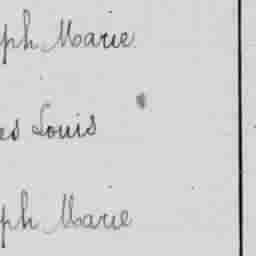 ph Marie
es Louis
ph Marie